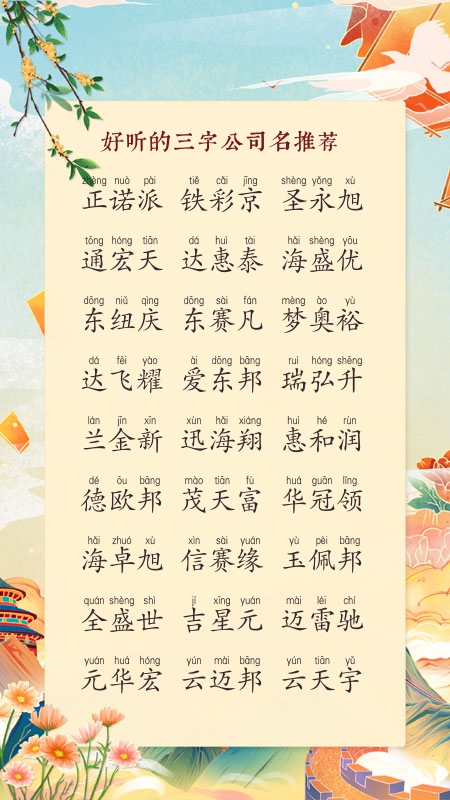 好听的三字公司名推荐
zhèng nuò pài tiě cǎi jīng shèng yǒng xù
正诺派 铁彩京 圣永旭
tōng hóng tiān dá huì tài hǎi shèng yōu
通宏天 达惠泰 海盛优
dōng niǔ qìng dōng sài fán mèng ào yù
东纽庆 东赛凡 梦奥裕
dá fēi yào ài dōng bāng ruì hóng shēng
达飞耀 爱东邦 瑞弘升
lán jīn xīn xùn hǎi xiáng huì hé rùn
兰金新 迅海翔 惠和润
dé ōu bāng mào tiān fù huá guān lǐng
德欧邦 茂天富 华冠领
hǎi zhuó xù xìn sài yuán yù pèi bāng
海卓旭 信赛缘 玉佩邦
quán shèng shì jí xīng yuán mài léi chí
全盛世 吉星元 迈雷驰
yuán huá hóng yún mài bāng yún tiān yǔ
元华宏 云迈邦 云天宇